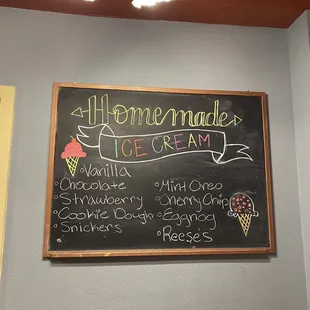 Homemade
ICE CREAM
Vanilla
Chocolate
Strawberry
Cookie Dough
Snickers
Mint Oreo
Cherry Chip
Eggnog
Reese's